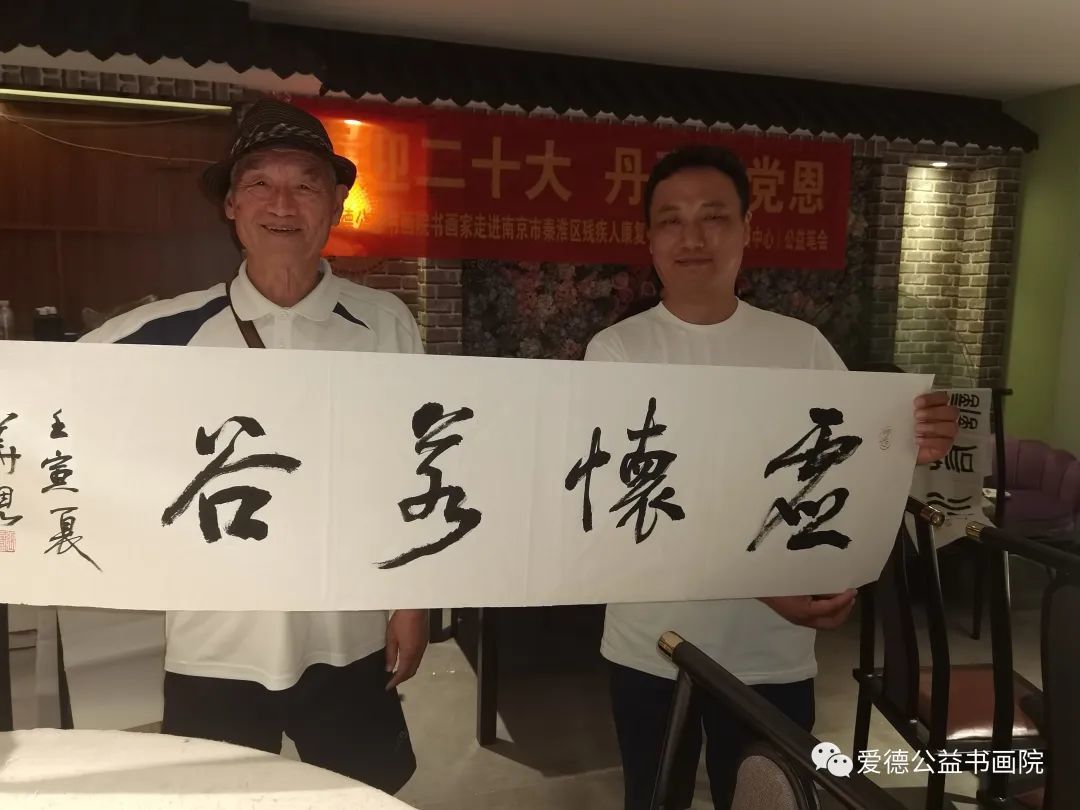 迎二十大 丹 党恩
书画院书画家走进南京市秦淮区残疾人康复 中心）公益笔会
虚懷若谷
壬寅夏
爱德公益书画院